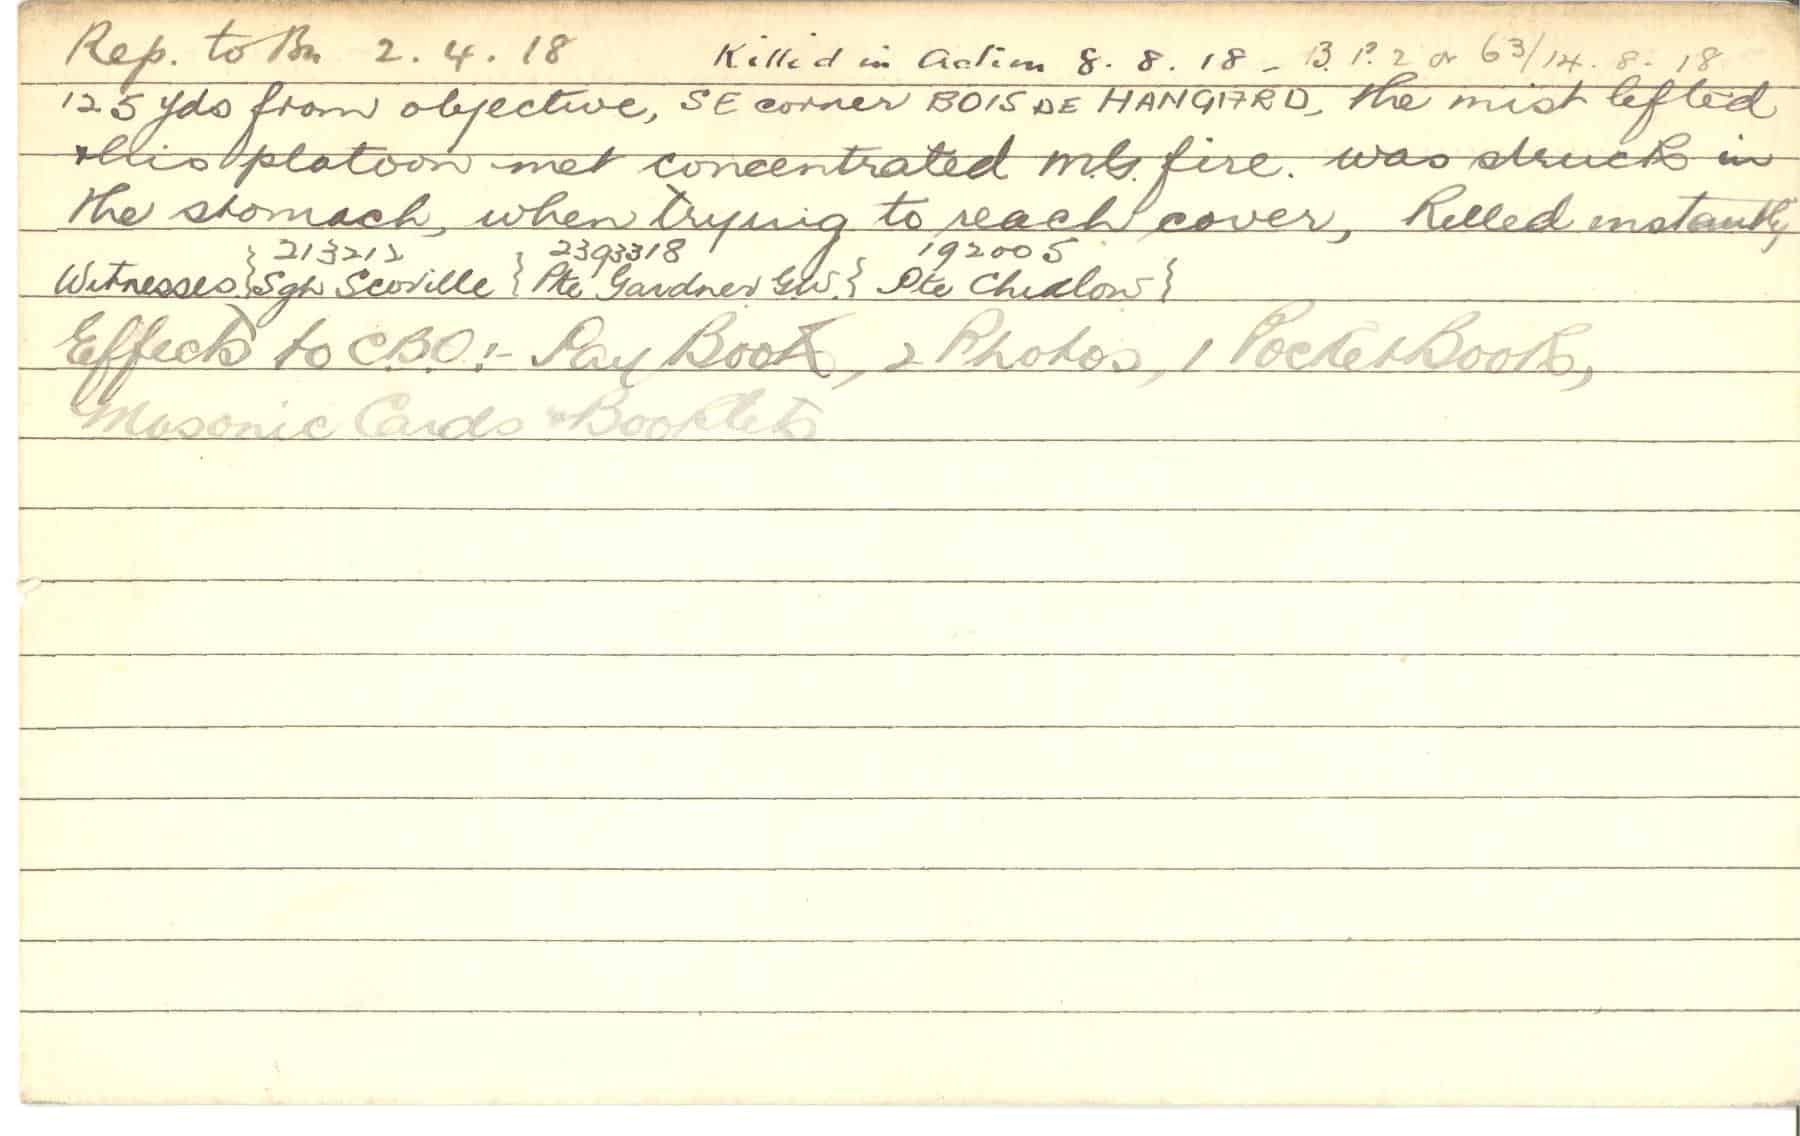 Rep. to Bn 2.4.18 Killed in Action 8.8.18 - B.P.2 or 63/14.8.18
125 yds from objective, SE corner BOIS DE HANGARD, the mist lifted
& his platoon met concentrated M.G. fire. was struck in
the stomach, when trying to reach cover, killed instantly
213212 2393318 192005
Witnesses {Sgt Scoville {Pte Gardner G.W.} Pte Chidlow}
Effects to C.B.O:- Pay Book, 2 Photos, 1 Pocket Book,
Masonic Cards & Booklets